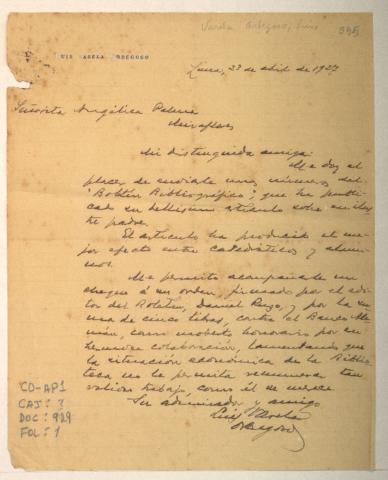 Varela Orbegoso, Luis 395
LUIS VARELA ORBEGOSO
Lima, 23 de abril de 1927
Señorita Angélica Palma
Miraflores
Mi distinguida amiga:
Me doy el
placer de enviarle unos números del
"Boletín Bibliográfico", que ha publi-
cado su bellísimo artículo sobre su ilus-
tre padre.
El artículo ha producido el me-
jor efecto entre catedráticos y alum-
nos.
Me permito acompañarle un
cheque á su orden, firmado por el edi-
tor del Boletín, Daniel Ruzo, y por la su-
ma de cinco libras, contra el Banco Ale-
mán, como modesto honorario por su
hermosa colaboración, lamentando que
la situación económica de la Biblio-
teca no le permita remunerar tan
valioso trabajo como él se merece.
Su admirador y amigo
Luis Varela
Orbegoso
CD-AP1
CAJ: 3
DOC: 929
FOL: 1